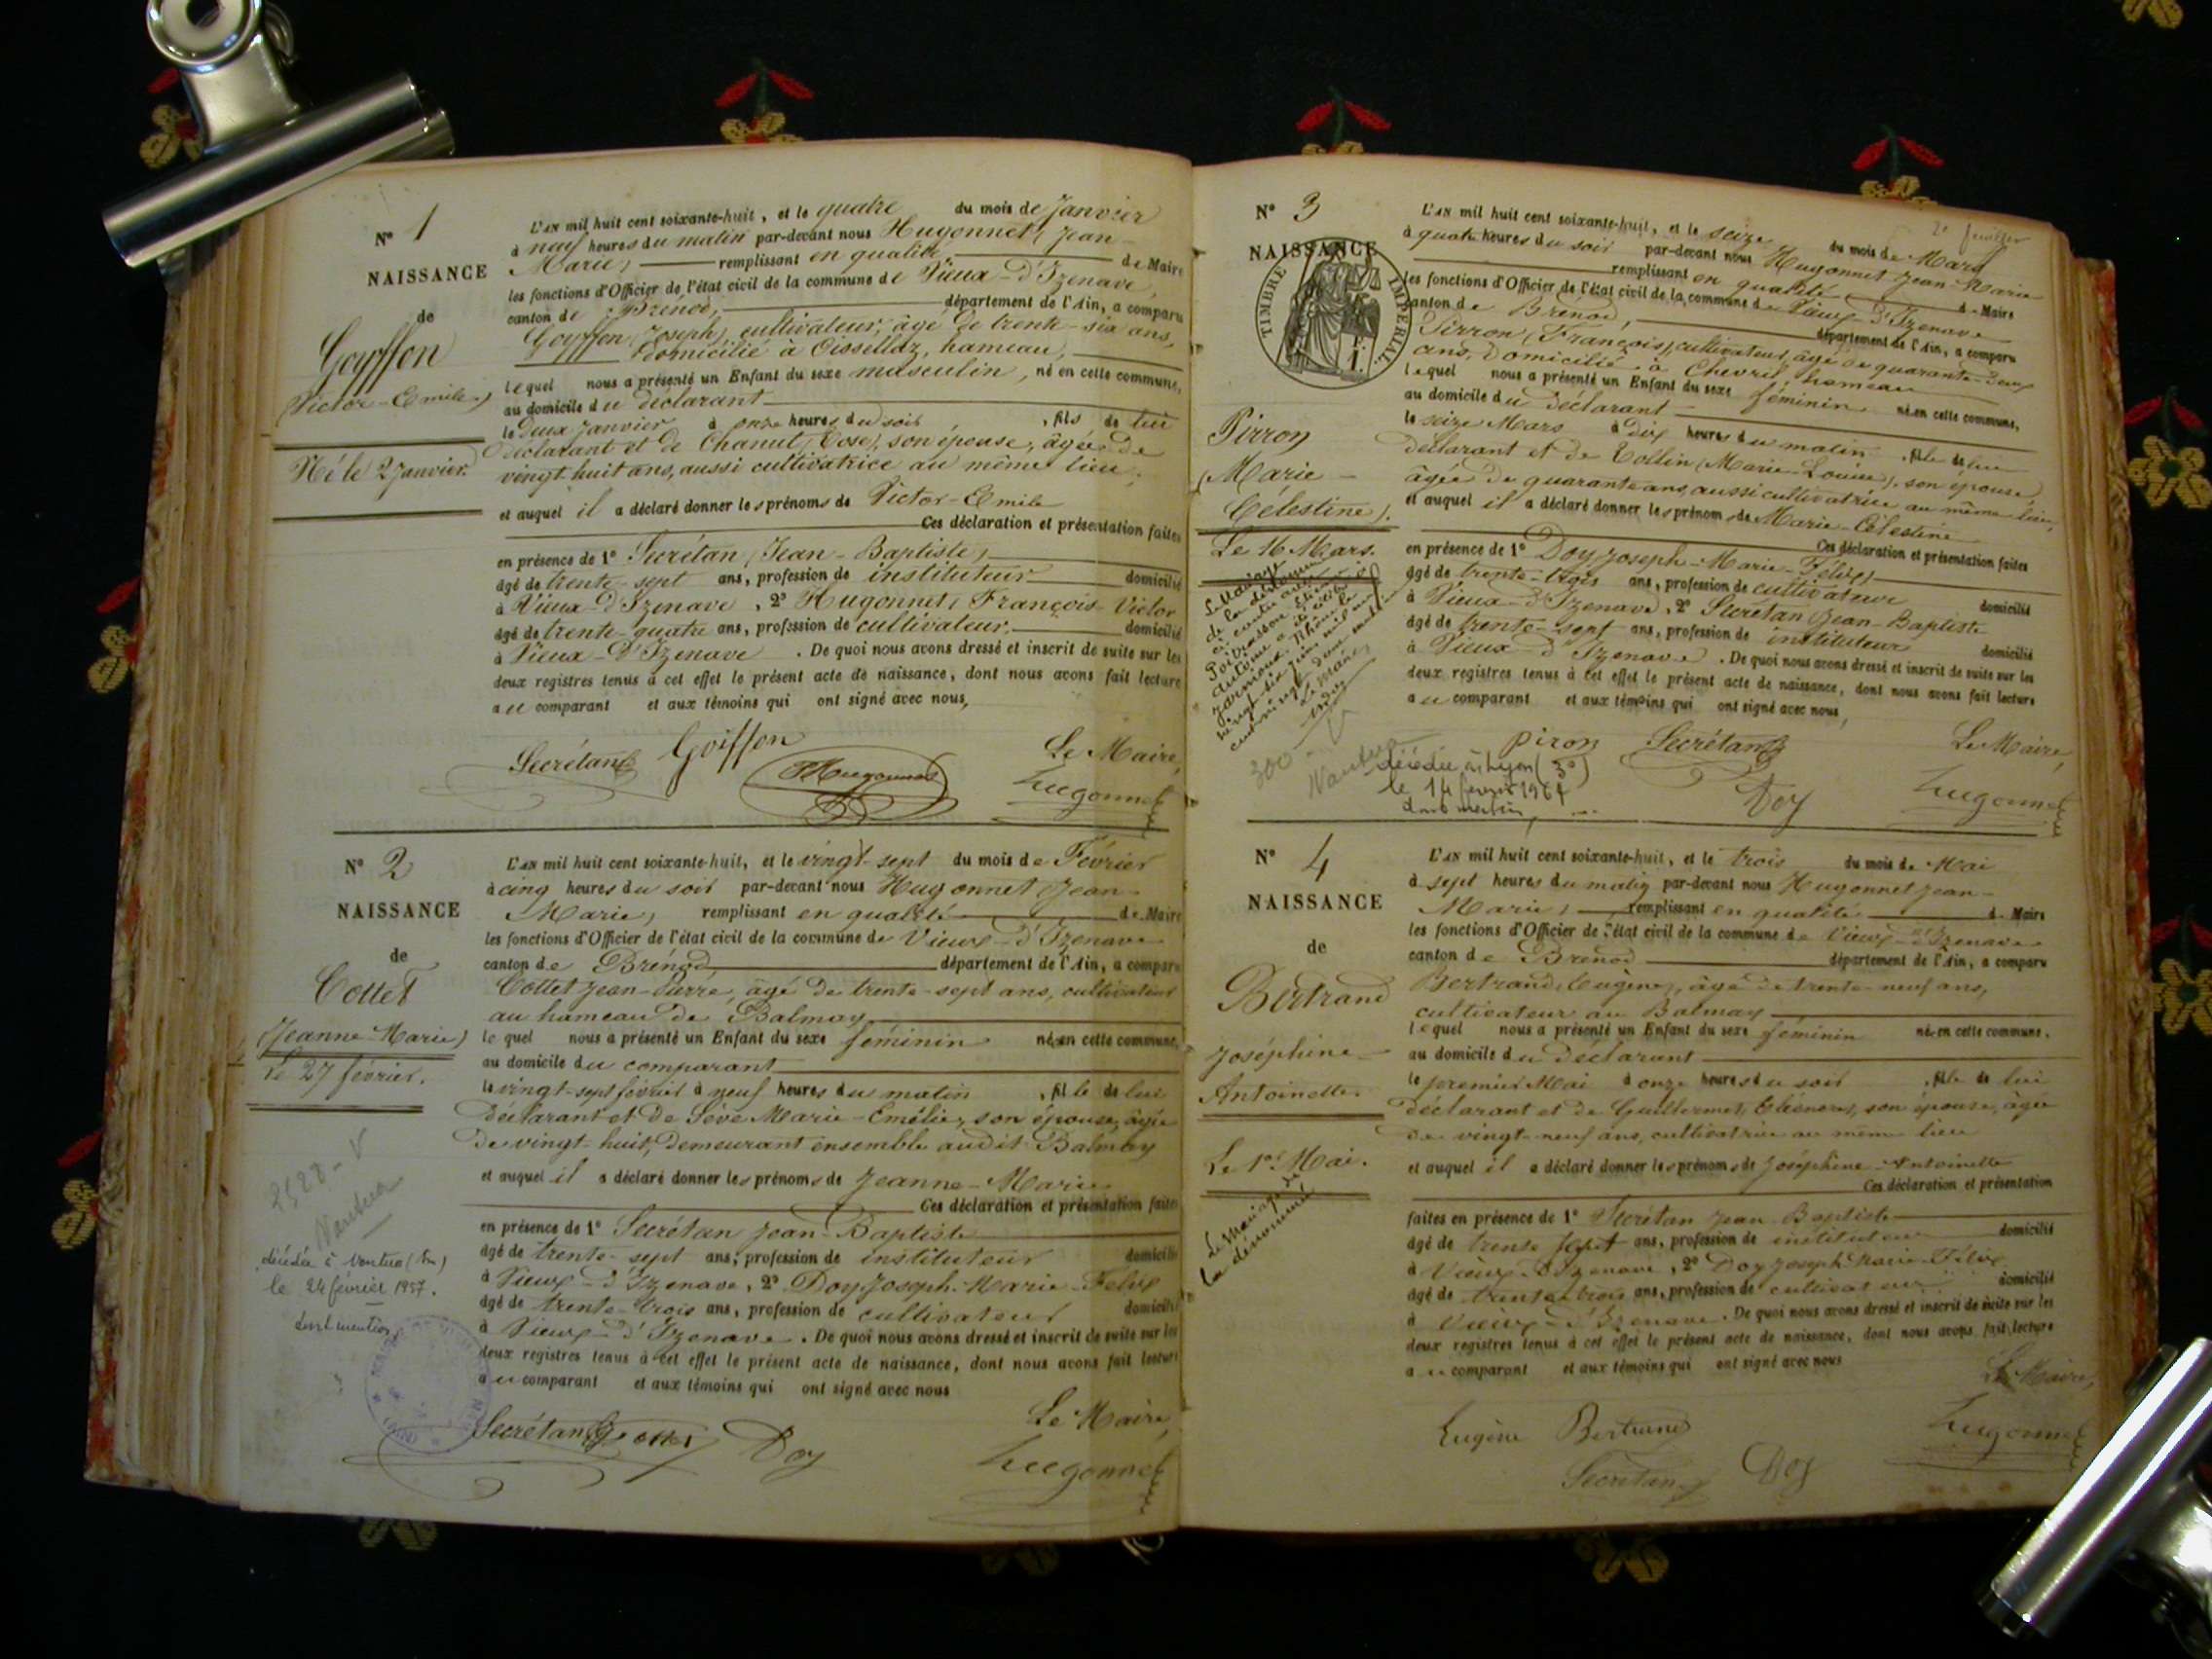 N° 1
NAISSANCE
de
Goyffon
(Victor-Emile)
Né le 2 Janvier.
L'AN mil huit cent soixante-huit, et le quatre du mois de Janvier
à neuf heures du matin par-devant nous Hugonnet (Jean-
Marie) remplissant en qualité de Maire
les fonctions d'Officier de l'état civil de la commune de Vieux-d'Izenave,
canton de Brénod, département de l'Ain, a comparu
Goyffon (Joseph), cultivateur, âgé de trente-six ans,
domicilié à Oisselaz, hameau,
lequel nous a présenté un Enfant du sexe masculin, né en cette commune,
au domicile du déclarant
le deux Janvier à onze heures du soir, fils de lui
déclarant et de Chanut (Rose), son épouse, âgée de
vingt-huit ans, aussi cultivatrice au même lieu;
et auquel il a déclaré donner les prénoms de Victor-Emile
Ces déclaration et présentation faites
en présence de 1° Secrétan (Jean-Baptiste)
âgé de trente-sept ans, profession de instituteur domicilié
à Vieux-d'Izenave, 2° Hugonnet, François-Victor
âgé de trente-quatre ans, profession de cultivateur, domicilié
à Vieux-d'Izenave. De quoi nous avons dressé et inscrit de suite sur les
deux registres tenus à cet effet le présent acte de naissance, dont nous avons fait lecture
au comparant et aux témoins qui ont signé avec nous,
Secrétan Goiffon Hugonnet Le Maire,
Hugonnet
N° 2
NAISSANCE
de
Cottet
(Jeanne-Marie)
Le 27 février.
Nantua
décédée à Nantua (Ain)
le 24 février 1957.
dont mention
L'AN mil huit cent soixante-huit, et le vingt-sept du mois de Février
à cinq heures du soir par-devant nous Hugonnet (Jean-
Marie) remplissant en qualité de Maire
les fonctions d'Officier de l'état civil de la commune de Vieux-d'Izenave
canton de Brénod département de l'Ain, a comparu
Cottet Jean-Pierre, âgé de trente-sept ans, cultivateur
au hameau de Balmay
lequel nous a présenté un Enfant du sexe féminin née en cette commune,
au domicile du comparant
le vingt-sept février à neuf heures du matin, fille de lui
déclarant et de Sève Marie-Emélie, son épouse, âgée
de vingt-huit, demeurant ensemble audit Balmay
et auquel il a déclaré donner les prénoms de Jeanne-Marie
Ces déclaration et présentation faites
en présence de 1° Secrétan Jean-Baptiste
âgé de trente-sept ans, profession de instituteur domicilié
à Vieux-d'Izenave, 2° Doy Joseph-Marie-Félix
âgé de trente-trois ans, profession de cultivateur domicilié
à Vieux-d'Izenave. De quoi nous avons dressé et inscrit de suite sur les
deux registres tenus à cet effet le présent acte de naissance, dont nous avons fait lecture
au comparant et aux témoins qui ont signé avec nous
Le Maire,
Secrétan Cottet Doy Hugonnet
2e feuillet
N° 3
NAISSANCE
TIMBRE IMPÉRIAL
Pirron
(Marie-
Célestine).
Le 16 Mars.
Le Mariage
de la dénommée
L'AN mil huit cent soixante-huit, et le seize du mois de Mars
à quatre heures du soir par-devant nous Hugonnet Jean-Marie
remplissant en qualité de Maire
les fonctions d'Officier de l'état civil de la commune de Vieux-d'Izenave
canton de Brénod, département de l'Ain, a comparu
Pirron (François), cultivateur, âgé de quarante-deux
ans, domicilié à Chevril, hameau
lequel nous a présenté un Enfant du sexe féminin née en cette commune,
au domicile du déclarant
le seize Mars à dix heures du matin, fille de lui
déclarant et de Tollin (Marie-Louise), son épouse,
âgée de quarante ans, aussi cultivatrice au même lieu,
et auquel il a déclaré donner les prénoms de Marie-Célestine
Ces déclaration et présentation faites
en présence de 1° Doy Joseph-Marie-Félix,
âgé de trente-trois ans, profession de cultivateur domicilié
à Vieux-d'Izenave, 2° Secrétan Jean-Baptiste
âgé de trente-sept ans, profession de instituteur domicilié
à Vieux d'Izenave. De quoi nous avons dressé et inscrit de suite sur les
deux registres tenus à cet effet le présent acte de naissance, dont nous avons fait lecture
au comparant et aux témoins qui ont signé avec nous,
piron Secrétan Le Maire,
Doy Hugonnet
300
Nantua
décédée à Lyon (3e)
le 14 février 1967
dont mention
N° 4
NAISSANCE
de
Bertrand
Joséphine-
Antoinette.
Le 1er Mai.
Le Mariage de
la dénommée
L'AN mil huit cent soixante-huit, et le trois du mois de Mai
à sept heures du matin par-devant nous Hugonnet Jean-
Marie, remplissant en qualité de Maire
les fonctions d'Officier de l'état civil de la commune de Vieux-d'Izenave
canton de Brénod département de l'Ain, a comparu
Bertrand (Eugène), âgé de trente-neuf ans,
cultivateur au Balmay
lequel nous a présenté un Enfant du sexe féminin née en cette commune,
au domicile du déclarant
le premier Mai à onze heures du soir, fille de lui
déclarant et de Guillermet, Eléonore, son épouse, âgée
de vingt-neuf ans, cultivatrice au même lieu
et auquel il a déclaré donner les prénoms de Joséphine-Antoinette
Ces déclaration et présentation
faites en présence de 1° Secrétan Jean-Baptiste domicilié
âgé de trente sept ans, profession de instituteur
à Vieux-d'Izenave, 2° Doy Joseph-Marie-Félix
âgé de trente-trois ans, profession de cultivateur domicilié
à Vieux-d'Izenave. De quoi nous avons dressé et inscrit de suite sur les
deux registres tenus à cet effet le présent acte de naissance, dont nous avons fait lecture
au comparant et aux témoins qui ont signé avec nous
Le Maire,
Eugène Bertrand Hugonnet
Secrétan Doy